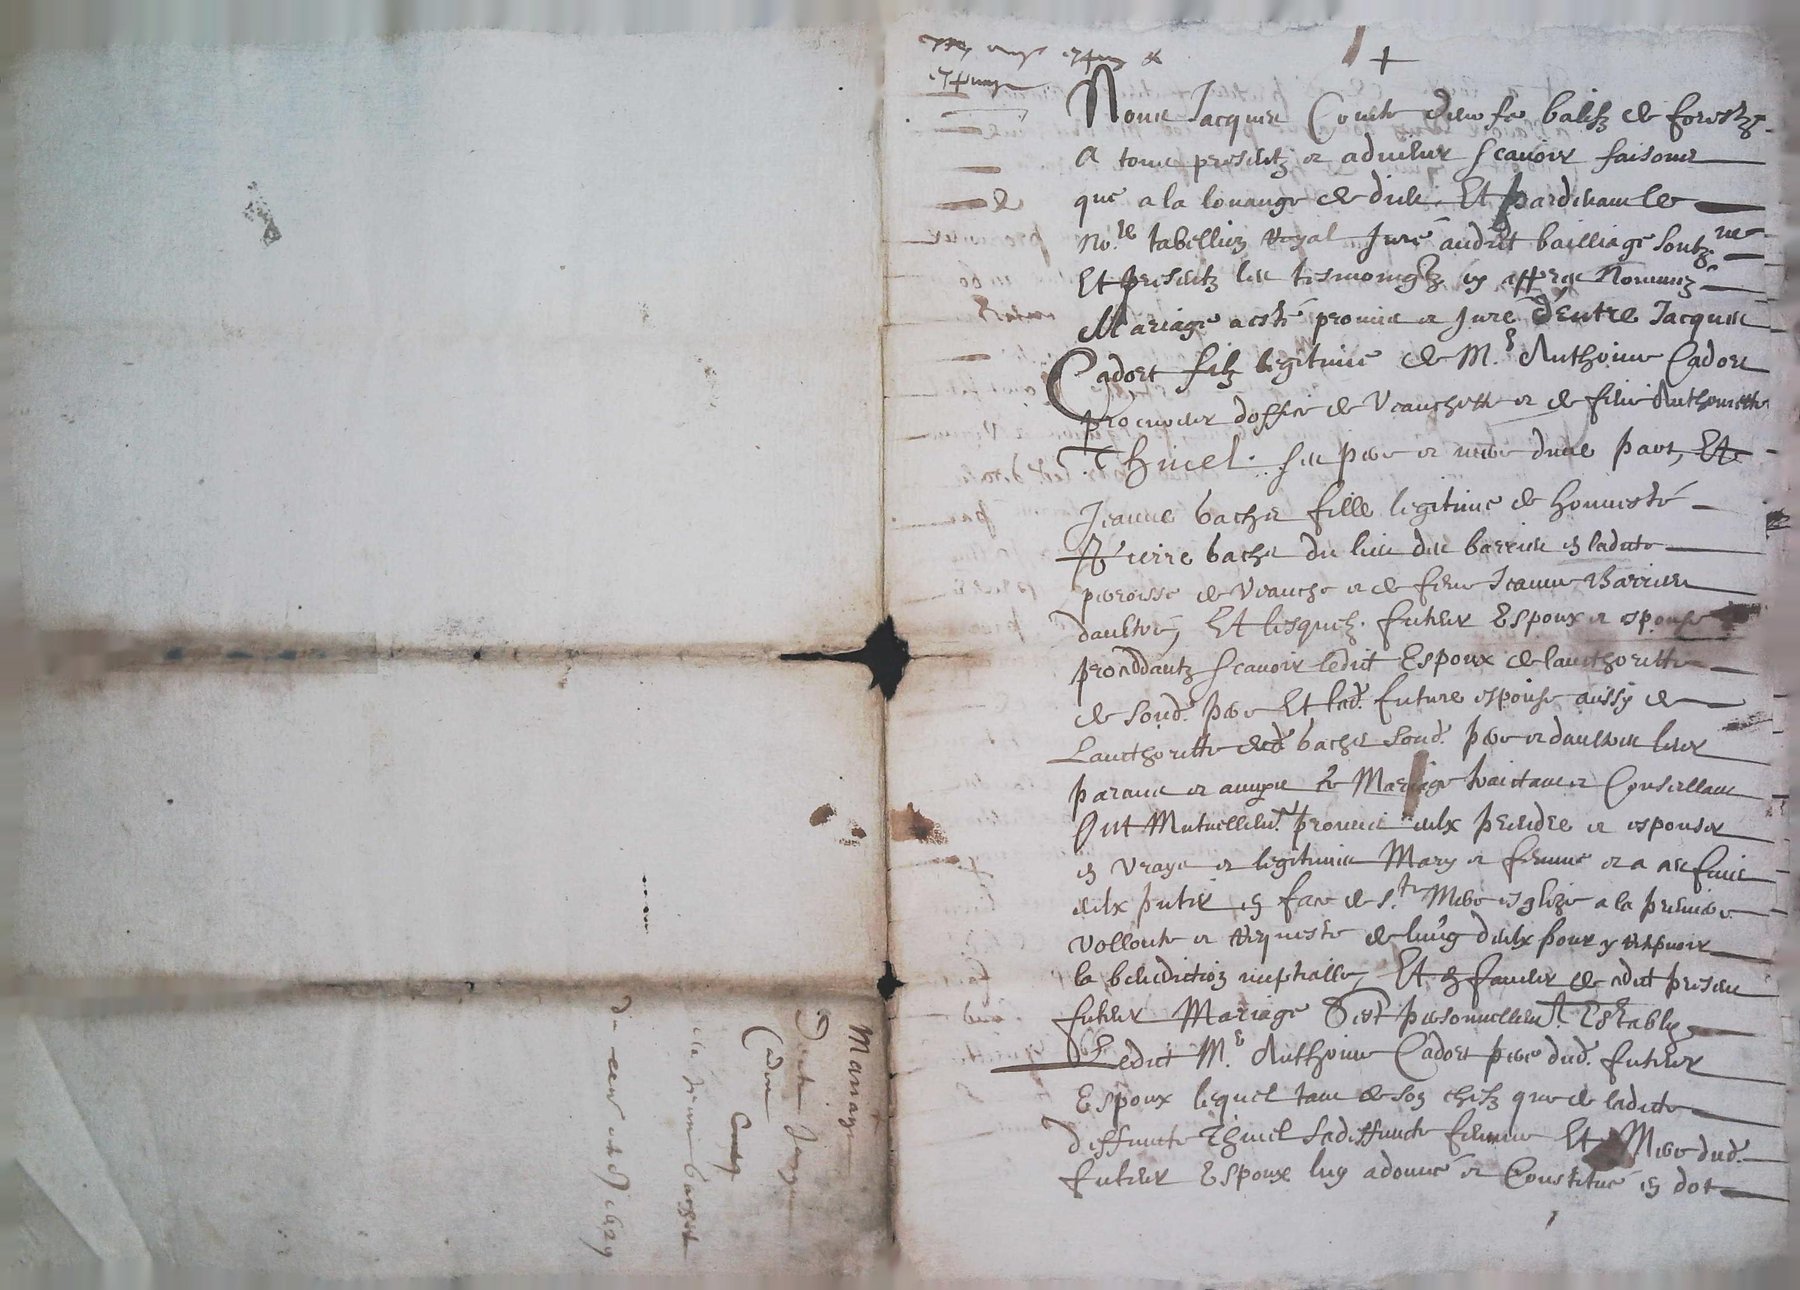 Nous Jacques Couste d'eu se balifz de forestz
A tous presentz et advenir scavoir faisons
que a la louange de dieu Et pardevant le
No.re tabellion royal Juré audit bailliage soubz.ne
Et presentz les tesmoingtz en appres Nommez
Mariage a esté promis et Juré d'entre Jacques
Cadort filz legitime de M.e Anthoine Cadort
procureur doffice de Veauchette et de feue Anthoinette
Thinel ses pere et mere dune part, Et
Jeanne bachet fille legitime de honnesté
Pierre bachet du lieu des barries en ladite
parroisse de Veauche et de feue Jeanne Barrieu
daultre, Et lesquelz futeur Espoux et espouse
proceddantz scavoir ledit Espoux de lauthoritte
de sond. pere Et lad. future espouse aussy de
Lauthoritte dud. bachet sond. pere et daultres leur
parans et amys Le Mariage traictans et Conseillans
Ont Mutuellem.t promis eulx prendre et espouser
en vraye et legitimes Mary et femme et a ces fins
eulx puter en face de s.te Mere esglize a la premiere
vollonte et Requeste de lung deulx pour y recepvoir
la benediction nuptialle, Et en faveur de cedit presen
futeur Mariage Sest personnellem.t Estably
Ledict M.e Anthoine Cadort pere dud. futeur
Espoux lequel tant de son chefz que de ladite
deffuncte Thinel sa deffuncte femme Et Mere dud.
futeur Espoux luy a donné et Constitué en dot
Mariage
Dentre Jacques
Cadort
Et Jeanne bachet